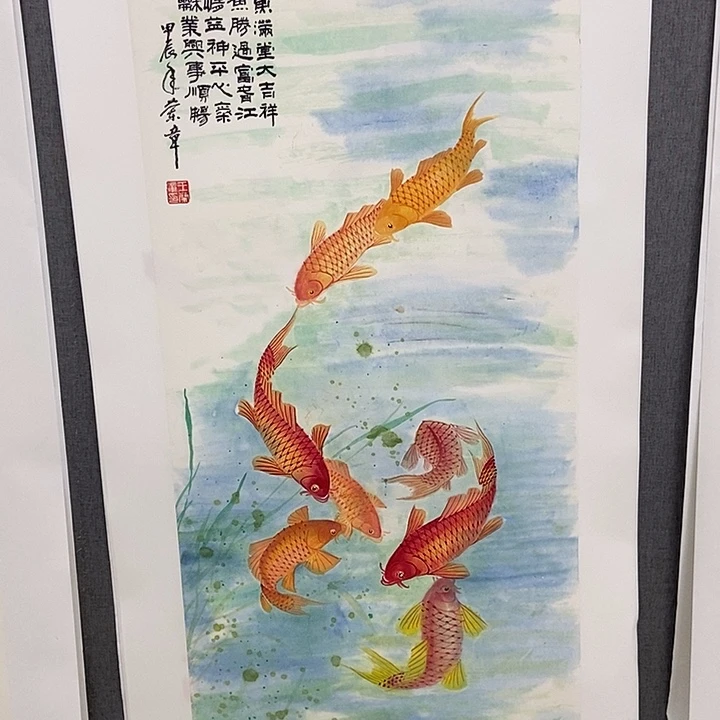 滿堂大吉祥
魚勝過富春江
益神平心
業興事順暢
甲辰年榮章